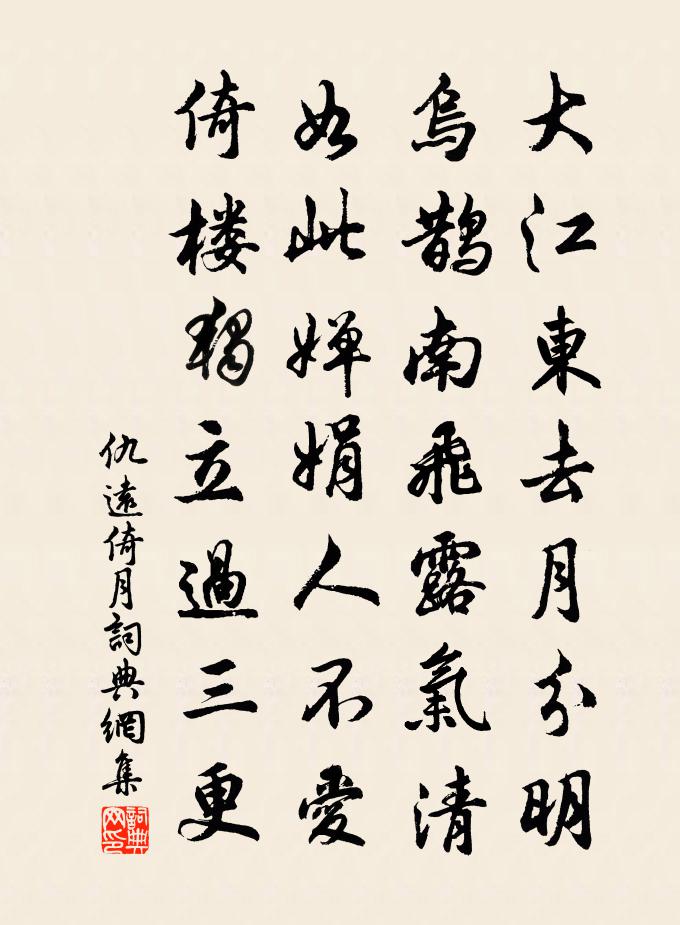 大江東去月分明
烏鵲南飛露氣清
如此嬋娟人不愛
倚楼獨立過三更
仇遠倚月詞典網集
詞典网印